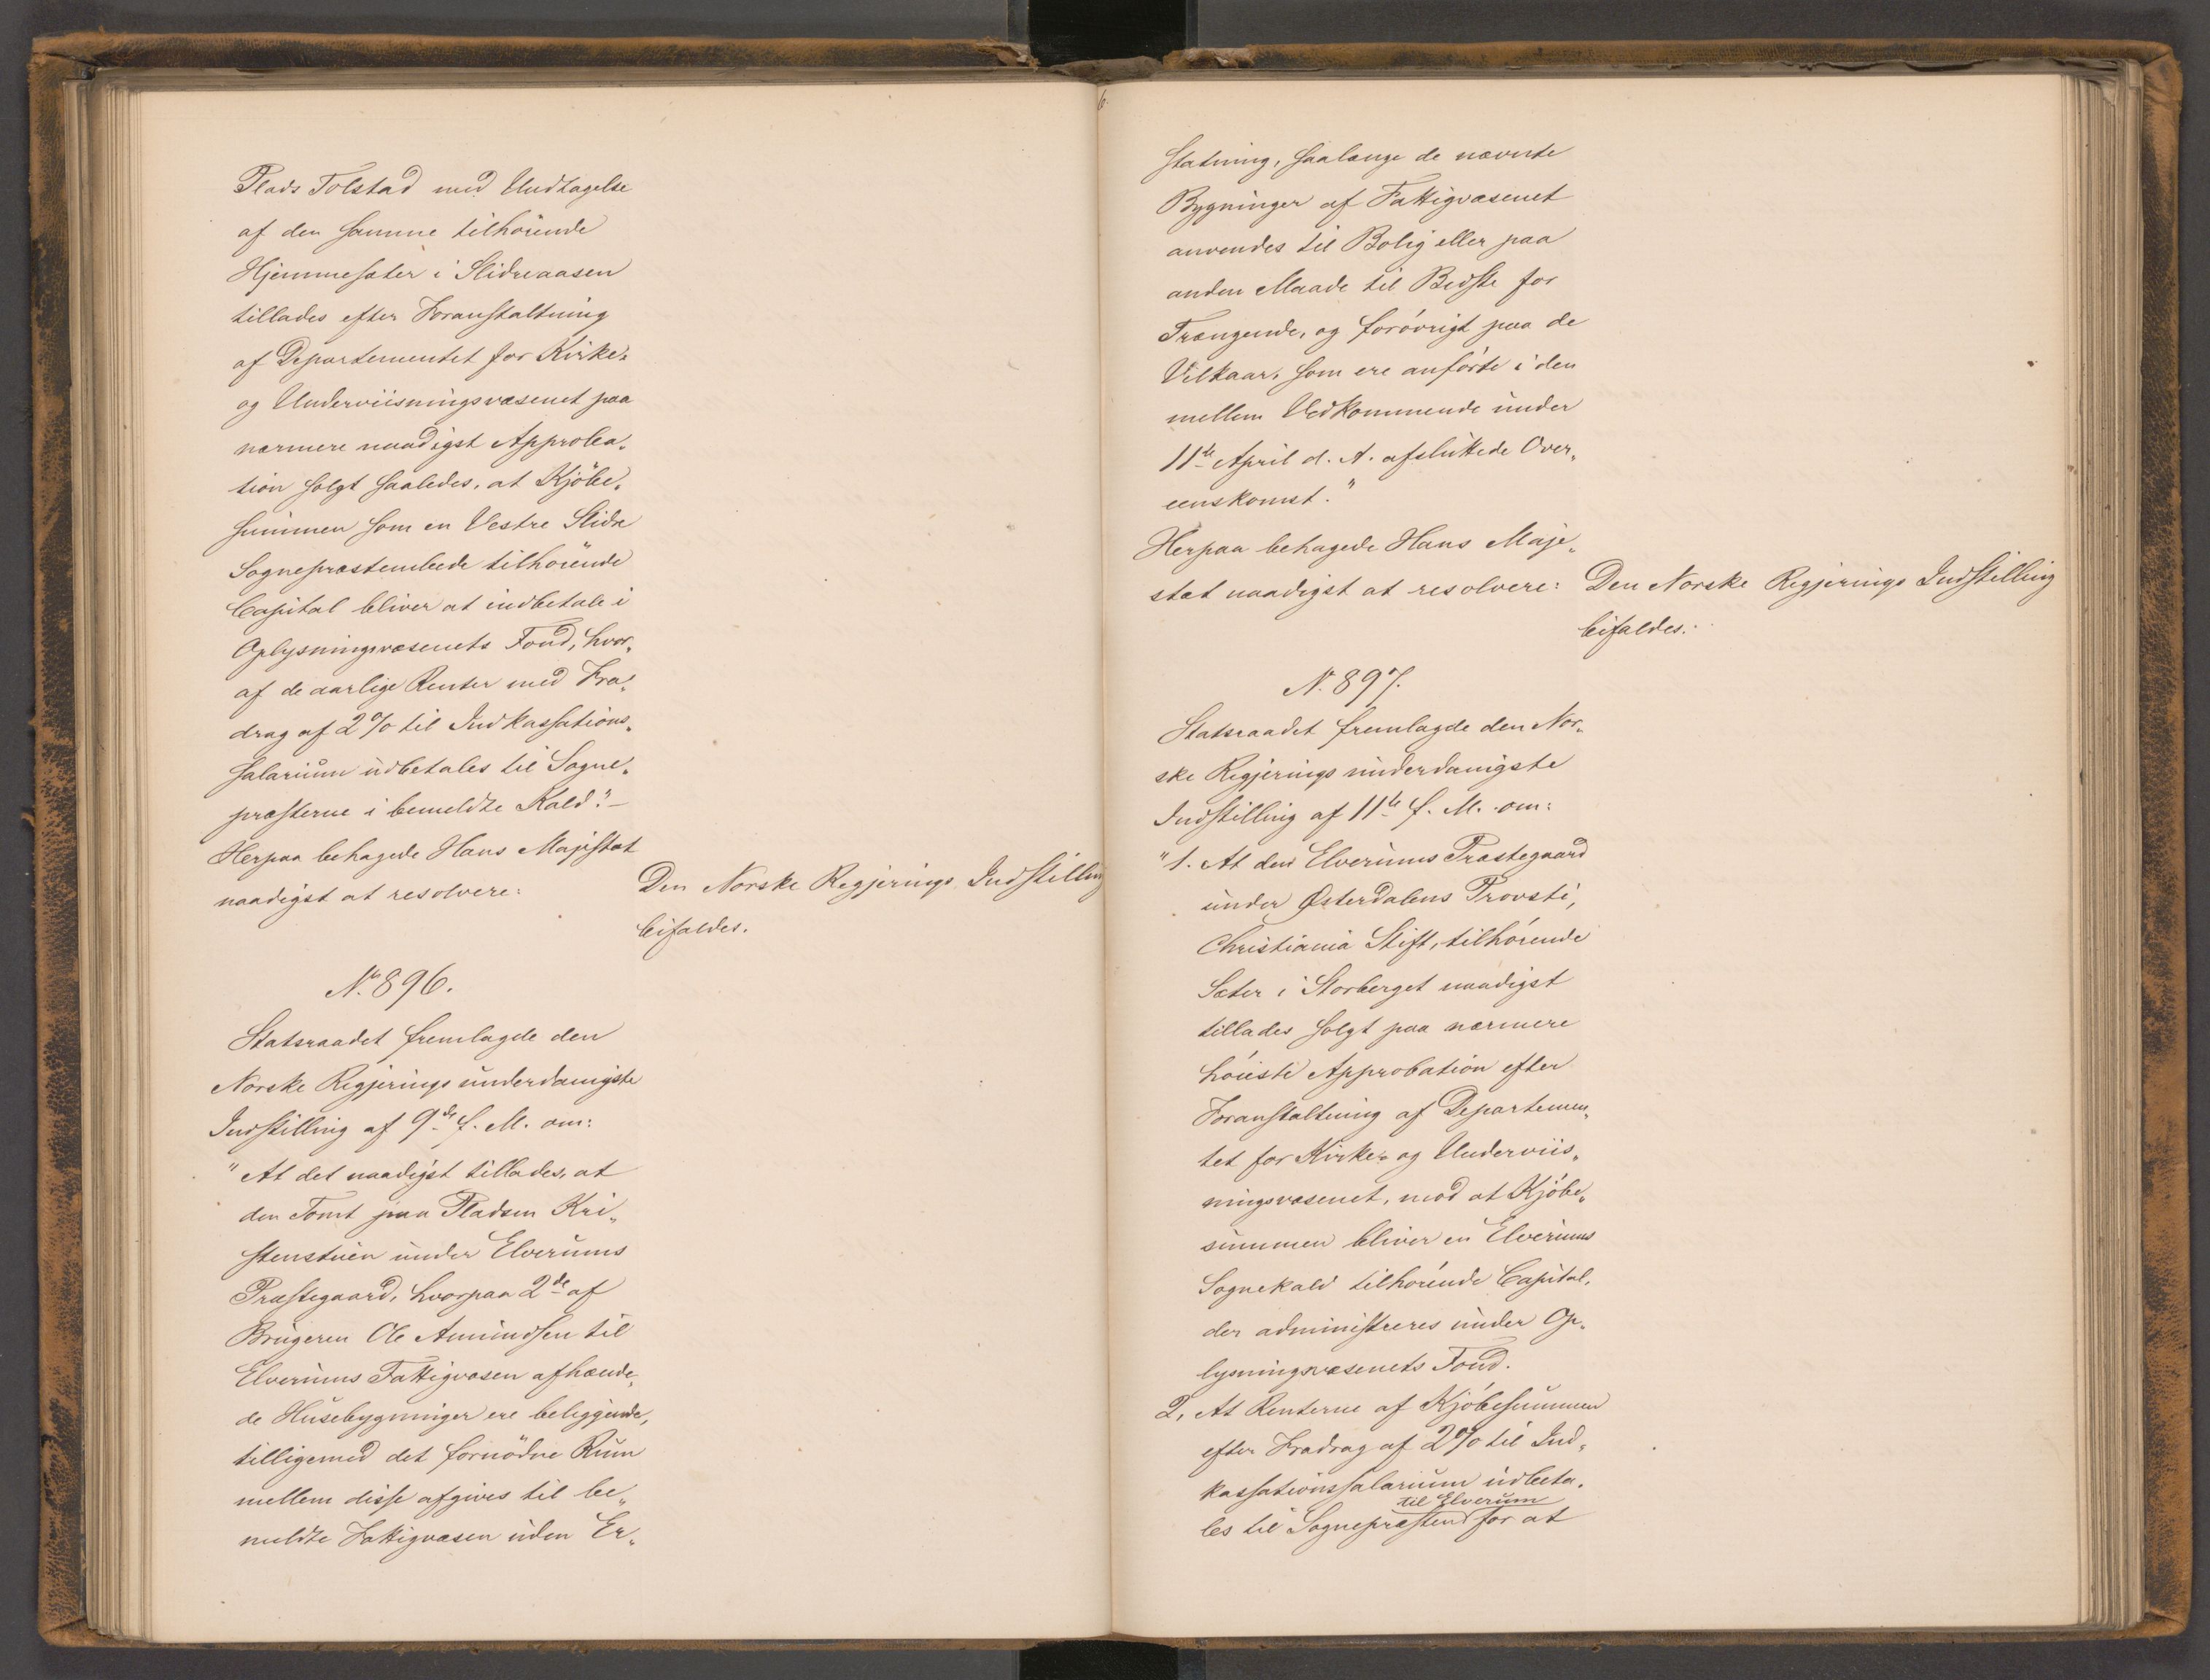 Plads Tolstad med Undtagelse
af den samme tilhørende
Hjemmesæter i Slidreaasen
tillades efter Foranstaltning
af Departementet for Kirke-
og Underviisningsvæsenet paa
nærmere naadigst Approba-
tion solgt saaledes, at Kjöbe-
summen som en Vestre Slidre
Sognepræstembede tilhörende
Capital bliver at indbetale i
Oplysningsvæsenets Fond, hvor-
af de aarlige Renter med Fra-
drag af 2 % til Indkassations-
salarium udbetales til Sogne-
præsterne i bemeldte Kald."-
Herpaa behagede Hans Majestæt
naadigst at resolvere:
Den Norske Regjerings Indstilling
bifaldes.
No. 896.
Statsraadet fremlagde den
Norske Regjerings underdanigste
Indstilling af 9de f. M. om:
"At det naadigst tillades, at
den Tomt paa Pladsen Kri-
stenstuen under Elverums
Præstegaard, hvorpaa 2de af
Brugeren Ole Amundsen til
Elverums Fattigvæsen afhænde-
de Husebygninger ere beliggende,
tilligemed det fornödne Rum
mellem disse afgives til be-
meldte Fattigvæsen uden Er-
statning, saalænge de nævnte
Bygninger af Fattigvæsenet
anvendes til Bolig eller paa
anden Maade til Bedste for
Trængende, og forövrigt paa de
Vilkaar, som ere anförte i den
mellem Vedkommende under
11te April d. A. afsluttede Over-
eenskomst."
Herpaa behagede Hans Maje-
stæt naadigst at resolvere:
Den Norske Regjerings Indstilling
bifaldes.
No. 897.
Statsraadet fremlagde den Nor-
ske Regjerings underdanigste
Indstilling af 11te f. M. om:
"1. At den Elverums Præstegaard
under Østerdalens Provsti,
Christiania Stift, tilhörende
Sæter i Storberget naadigst
tillades solgt paa nærmere
höieste Approbation efter
Foranstaltning af Departemen-
tet for Kirke- og Underviis-
ningsvæsenet, mod at Kjöbe-
summen bliver en Elverums
Sognekald tilhörende Capital,
der administreres under Op-
lysningsvæsenets Fond.
2, At Renterne af Kjöbesummen
efter Fradrag af 2 % til Ind-
kassationssalarium udbeta-
til Elverum
les til Sognepræsten for at